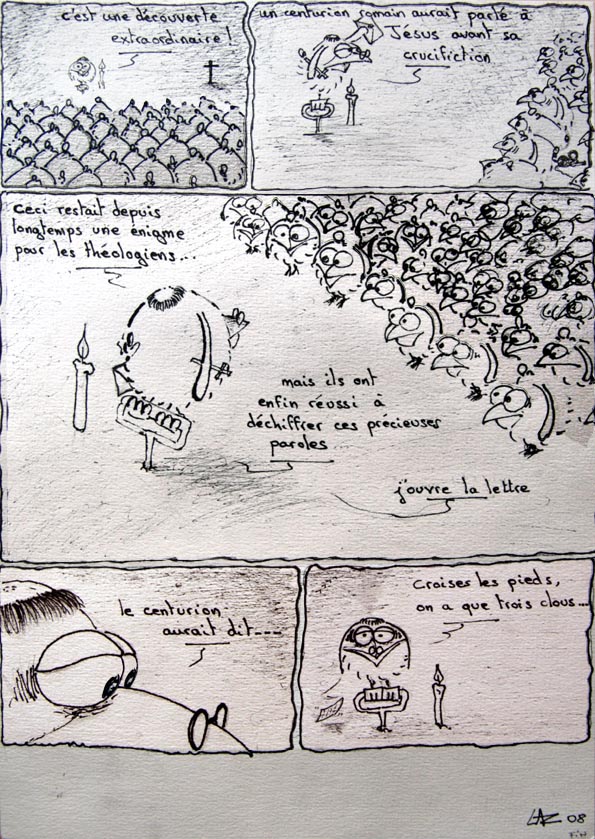 c'est une découverte
extraordinaire!
un centurion romain aurait parlé à
Jesus avant sa
crucifiction
ceci restait depuis
longtemps une énigme
pour les théologiens...
mais ils ont
enfin réussi à
déchiffrer ces précieuses
paroles...
j'ouvre la lettre
le centurion
aurait dit----
Croises les pieds,
on a que trois clous...
LAZ 08
Fin